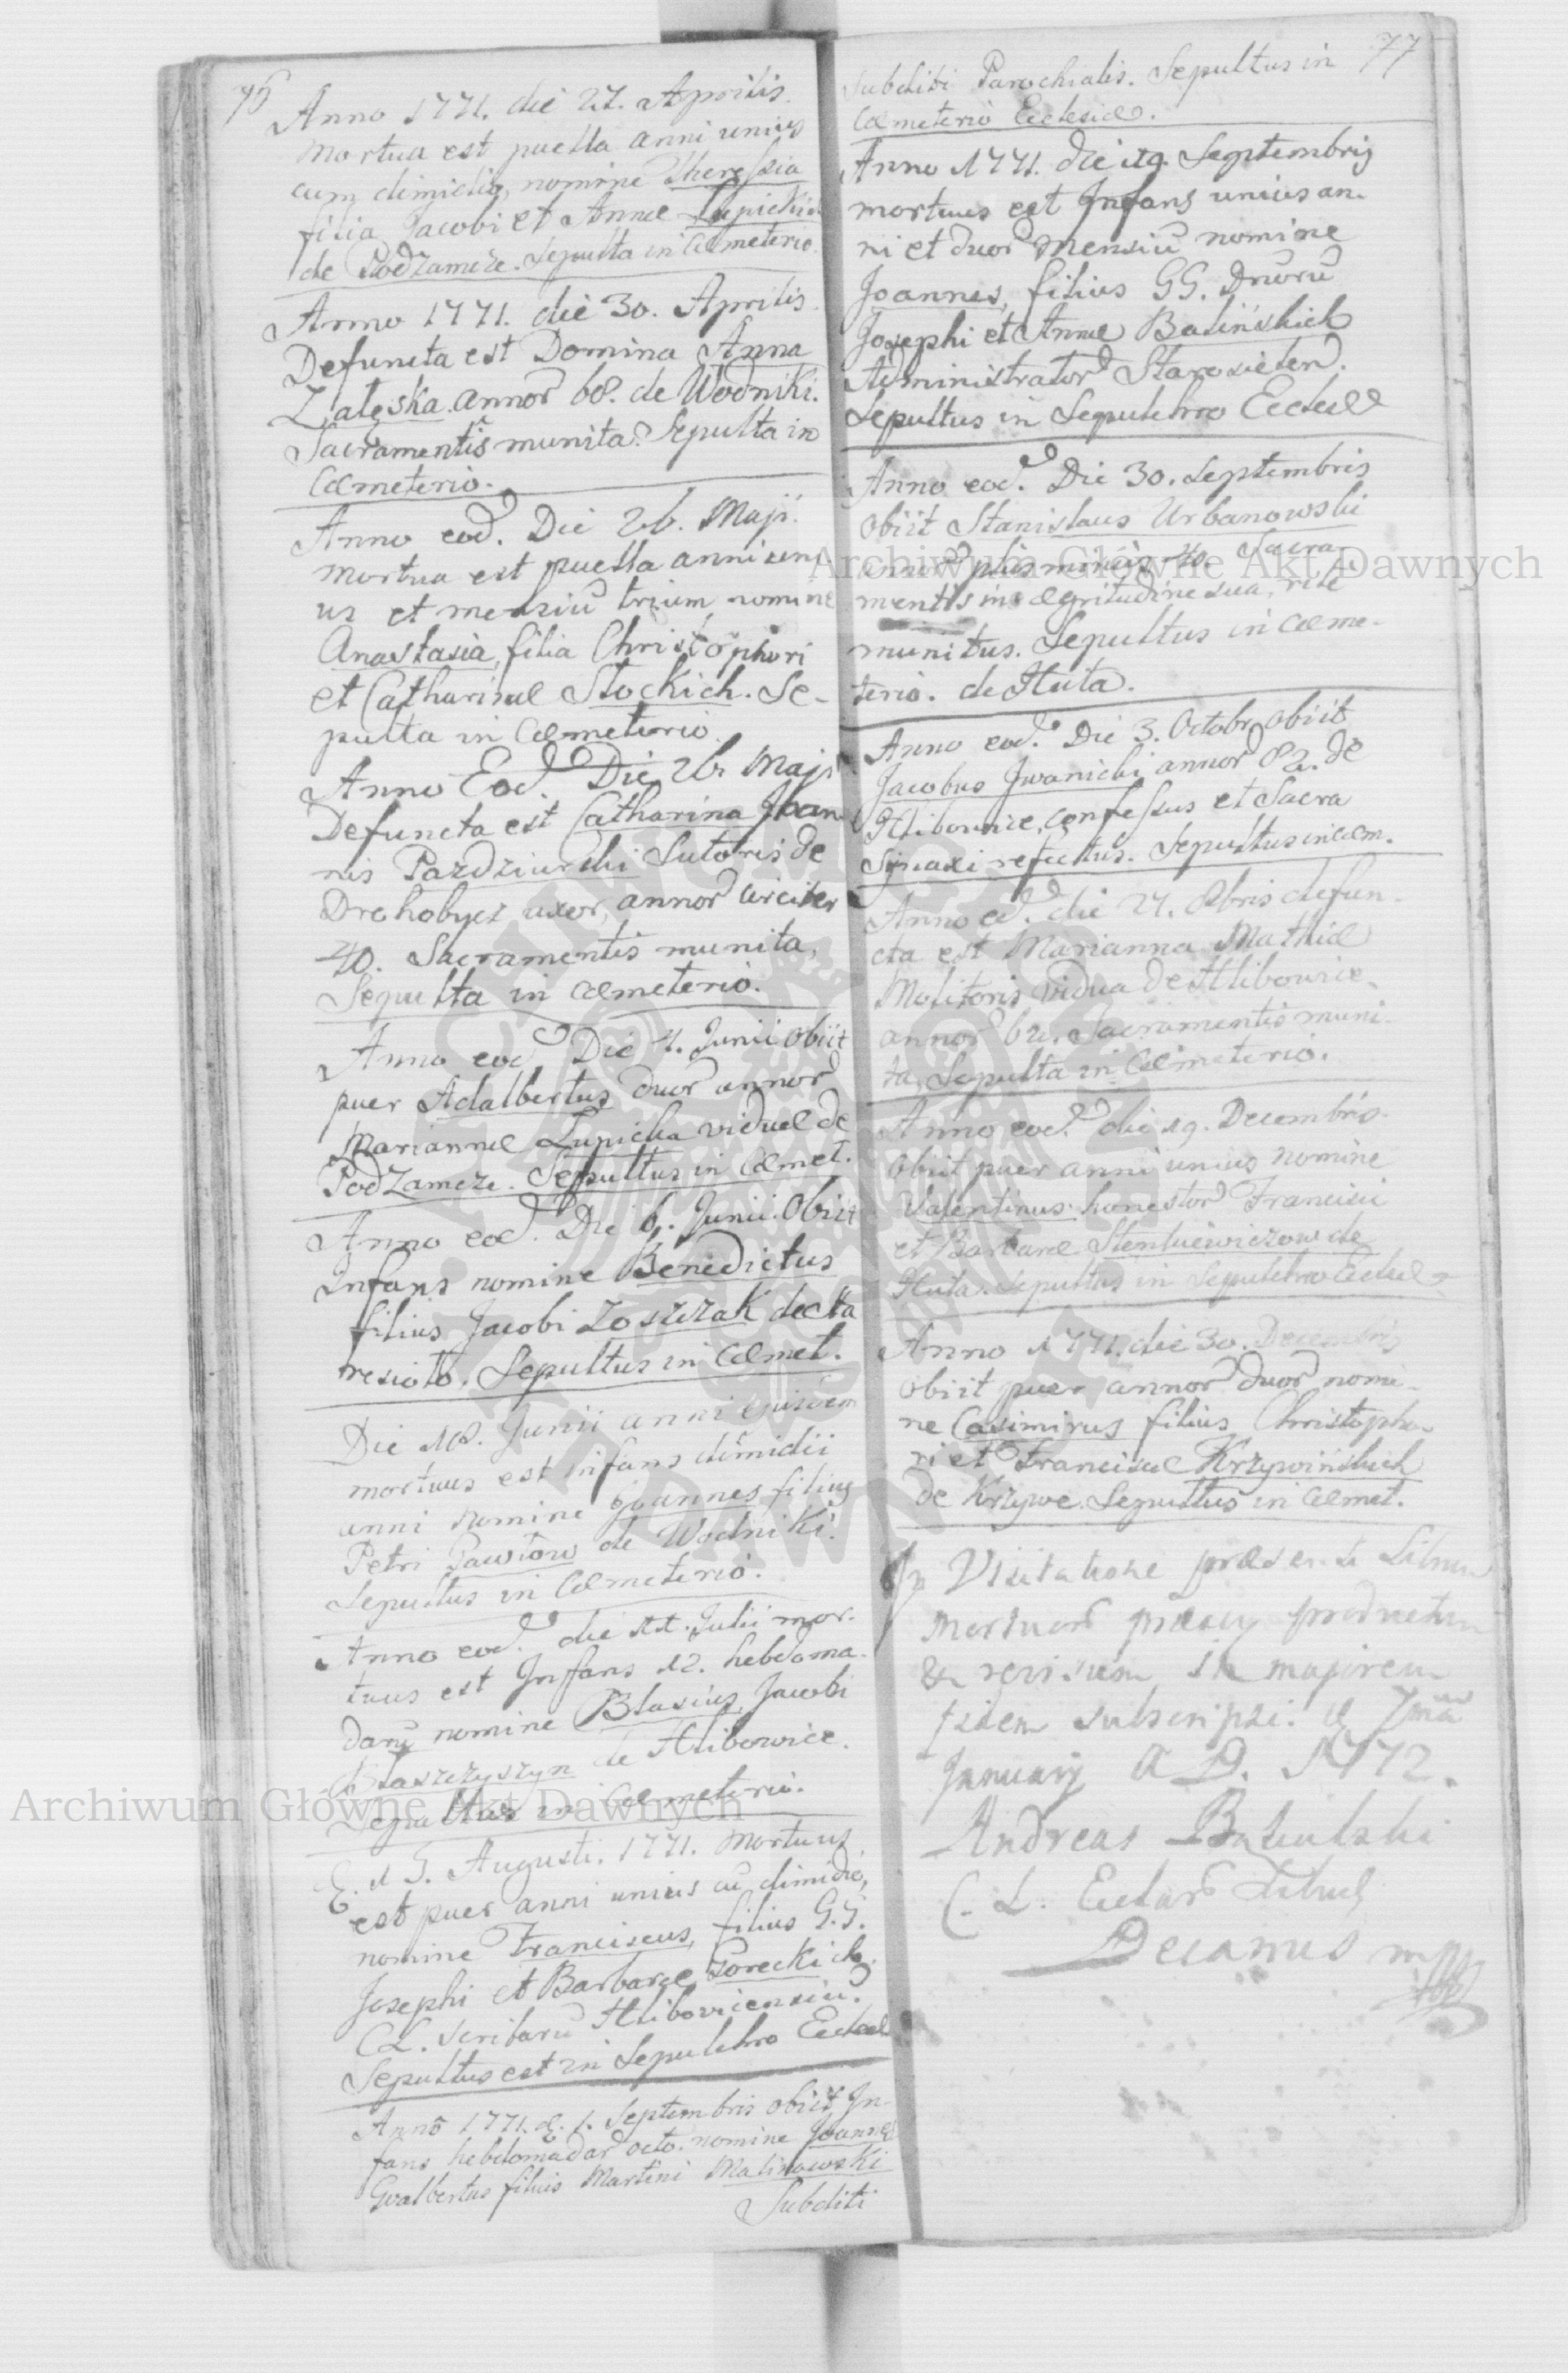 76
Anno 1771. die 27. Aprilis.
Mortua est puella anni unius
cum dimidio, nomine Theressia
filia Jacobi et Annæ Łupickich
de Podzamcze. Sepulta in Cæmeterio.
Anno 1771. die 30. Aprilis.
Defuncta est Domina Anna
Załęska annor 68. de Wodniki.
Sacramentis munita. Sepulta in
Cæmeterio.
Anno eod. Die 26. Maji.
Mortua est puella anni uni-
us et mensiu trium, nomine
Anastasia, filia Christophori
et Catharinæ Stockich. Se-
pulta in Cæmeterio.
Anno Eod. Die 26. Maji
Defuncta est Catharina Joan
nis Pazdziurski Sutoris de
Drohobycz uxor, annor circiter
40. Sacramentis munita,
Sepulta in Cæmeterio.
Anno eod Die 4. Junii obiit
puer Adalbertus duor annor
Mariannæ Łupicka viduæ de
Podzamcze. Sepultus in Cæmet.
Anno eod. Die 6. Junii. Obiit
Infans nomine Benedictus
filius Jacobi Loszczak de Sta
resioło. Sepultus in Cæmet.
Die 18. Junii anni ejusdem
mortuus est infans dimidii
anni nomine Joannes filius
Petri Pawłow de Wodniki.
Sepultus in Cæmeterio.
Anno eod. die 11. Julii mor-
tuus est Infans 12. hebdoma-
daru nomine Blasius, Jacobi
Błaszczyszyn de Hlibowice.
Sepultus in Cæmeterio.
E. d 5. Augusti. 1771. Mortuus
est puer anni unius cu dimidio,
nomine Franciscus, filius G.G.
Josephi et Barbaræ Goreckich
CL. scribaru Hliboviciensiu.
Sepultus est in Sepulchro Eccles
Anno 1771. d. 1. Septembris obiit In-
fans hebdomadar octo. nomine Joannes
Gvalbertus filius Martini Malinowski
Subditi
77
Subditi Parochialis. Sepultus in
Cæmeterio Ecclesiæ.
Anno 1771. die 19. Septembris
mortuus est Infans unius an-
ni et duor Mensiu nomine
Joannes, filius GG. Dnoru
Josephi et Annæ Balińskich
Administrator Starosielen.
Sepultus in Sepulchro Ecclesiæ
Anno eod. Die 30. Septembris
obiit Stanislaus Urbanowski
annor plus minus 40. Sacra-
mentis in ægritudine sua, rite
munitus. Sepultus in Cæme-
terio. de Huta.
Anno eod. Die 3. Octobr obiit
Jacobus Jwanicki annor 82. de
Hlibowice, confessus et Sacra
Sinaxi refectus. Sepultus in cæm.
Anno eod. die 27. 8bris defun-
cta est Marianna Mathiæ
Molitoris vidua de Hlibowice,
annor 62. Sacramentis muni-
ta, Sepulta in Cæmeterio.
Anno eod. die 19. Decembris.
obiit puer anni unius nomine
Valentinus honestor Francisci
et Barbaræ Stenkiewiczow de
Huta. Sepultus in Sepulchro Eccles
Anno 1771. die 30. Decembris
obiit puer annor duor nomi-
ne Casimirus filius Christopho-
ri et Franciscæ Krzywińskich
de Krzywe. Sepultus in Cæmet.
In Visitatione præsente Librum
Mortuor productum
& revisum in majorem
fidem subscripsi. d 7mâ
January A D. 1772.
Andreas
C. L.
Decanus mpp
Archiwum Główne Akt Dawnych
Archiwum Główne Akt Dawnych